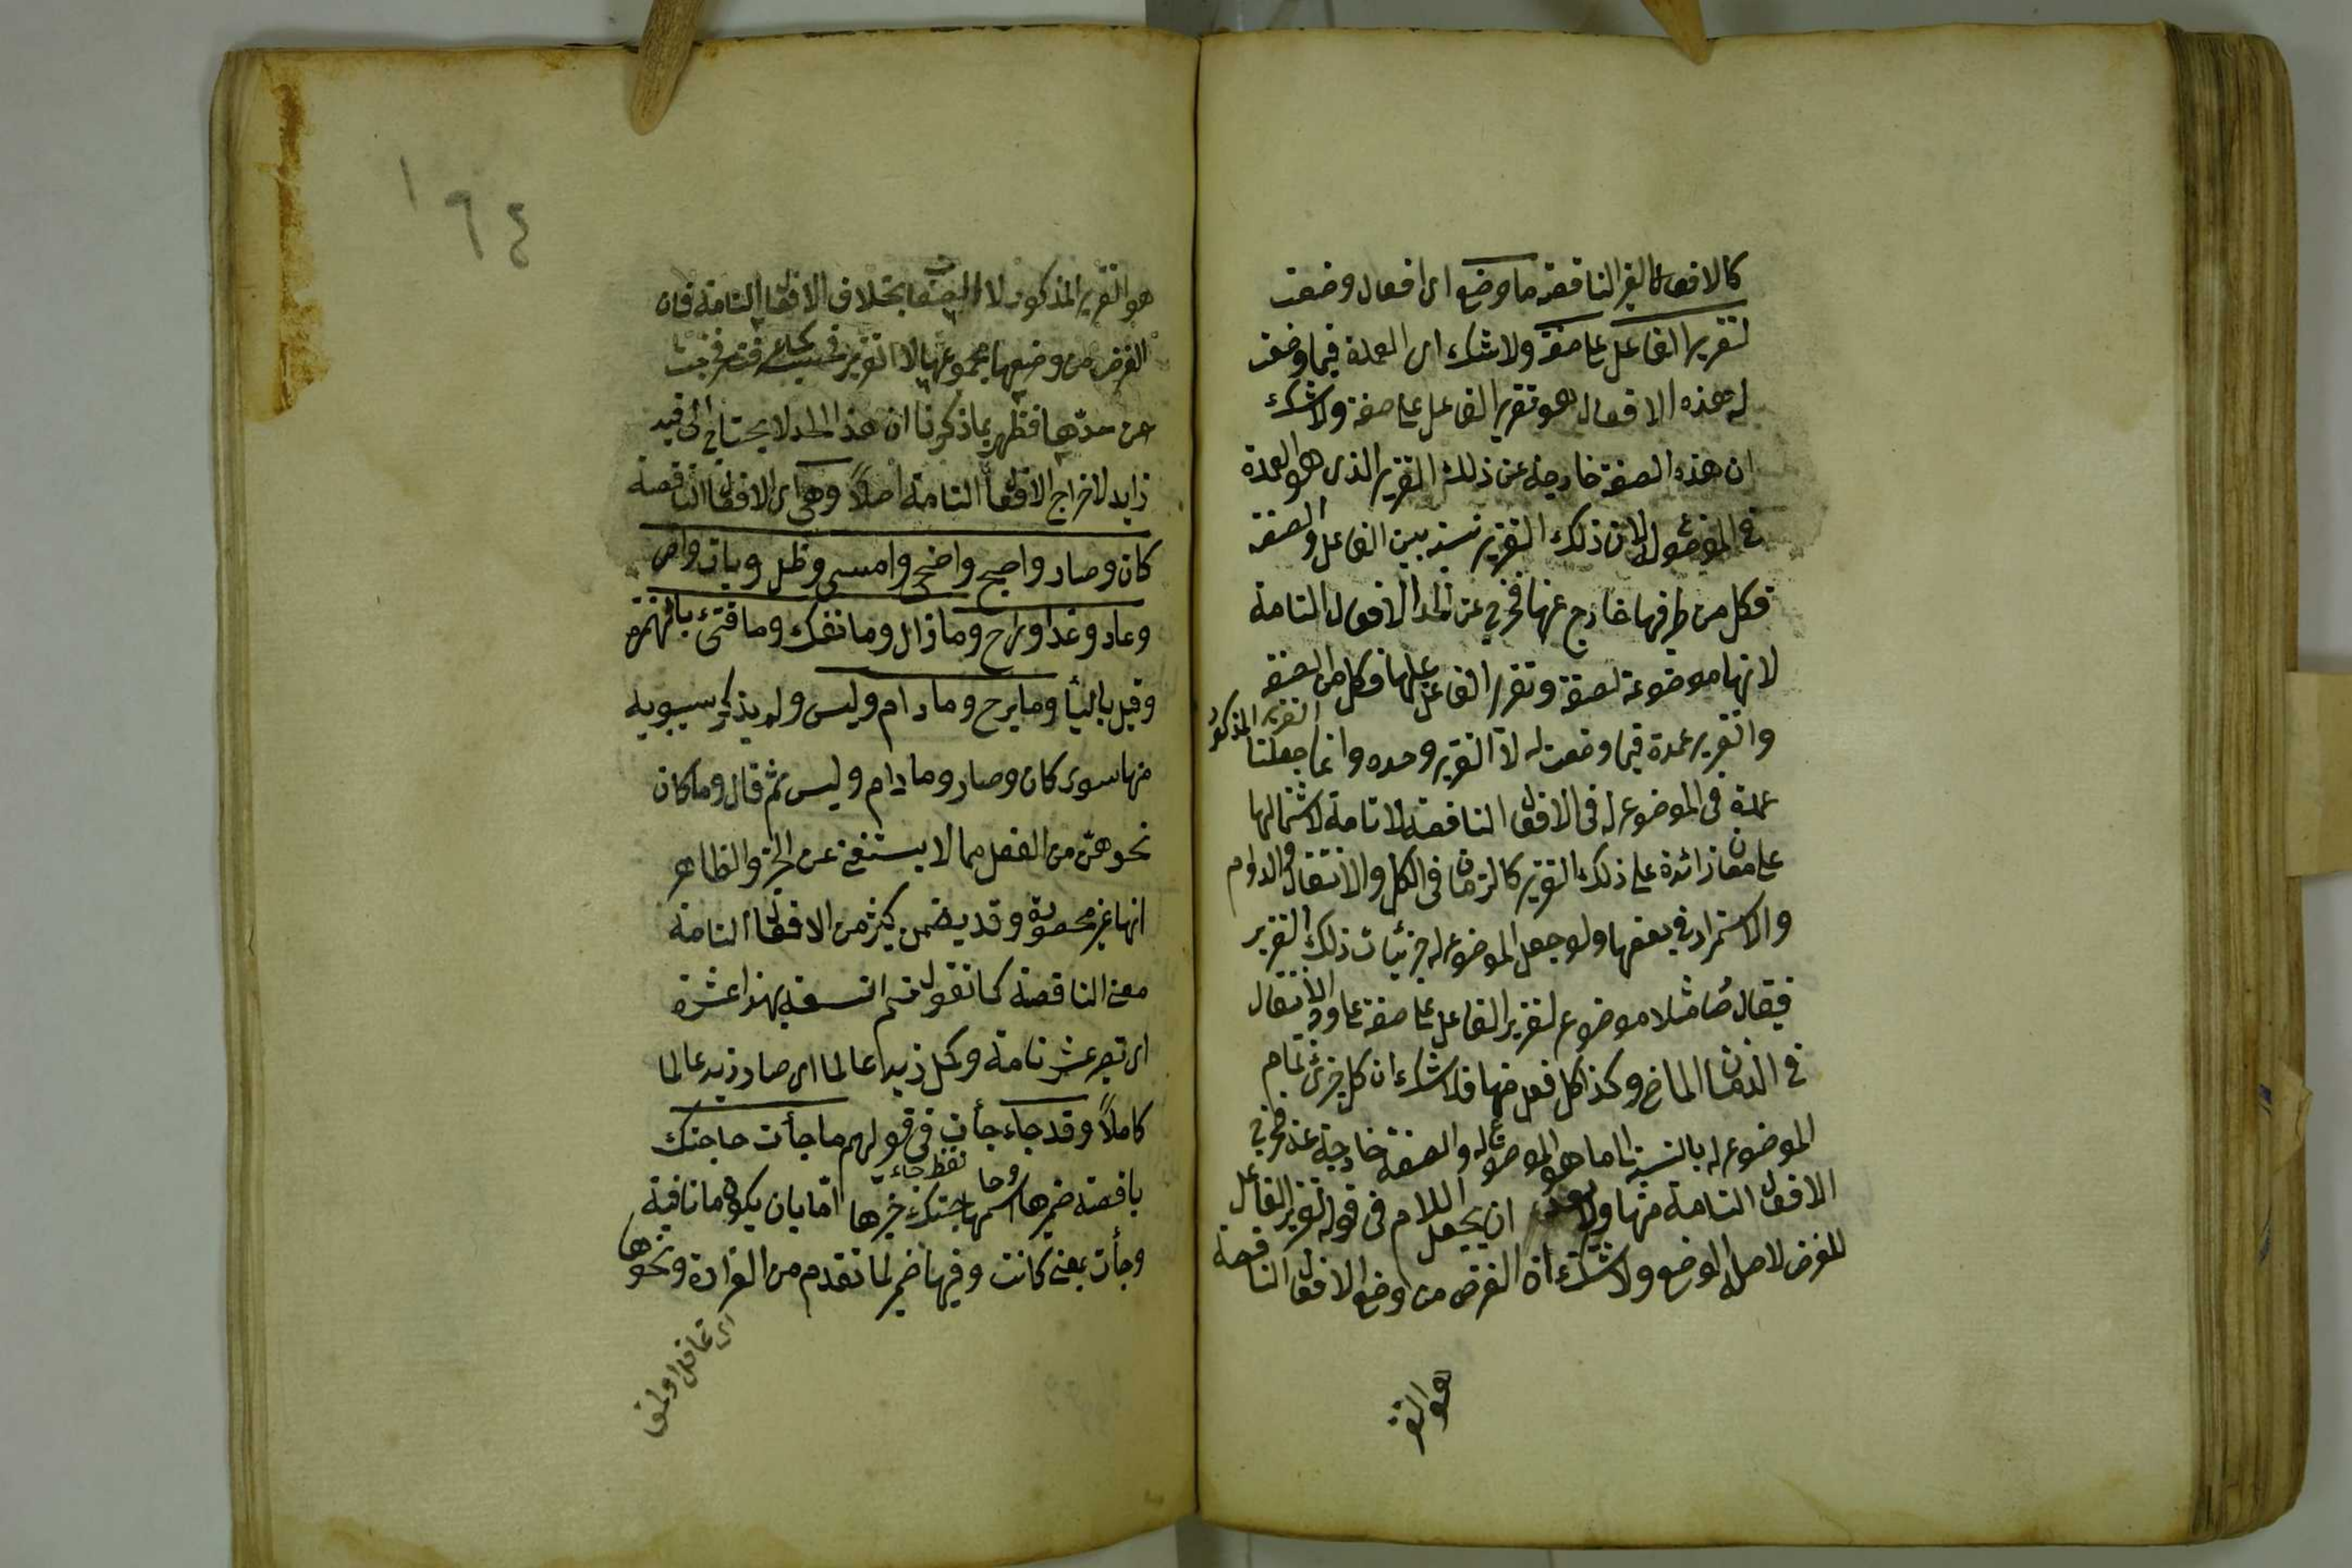 كالافعال الغير الناقصة ما وضع اى افعال وضعت
لتقرير الفاعل على صفة ولا شك اى العمدة فيما وضعت
له هذه الافعال هو تقرير الفاعل على صفة ولا شك
ان هذه الصفة خارجة عن ذلك التقرير الذى هو العمدة
فى الموضوع له لان ذلك التقرير نسبة بين الفاعل والصفة
فكل من طرفيها خارج عنها فخرج عن الحد الافعال التامة
لانها موضوعة لصفة وتقرير الفاعل عليها فكل من الصفة
والتقرير عمدة فيما وضعت له لا التقرير وحده وانما جعلنا
التقرير المذكور
عمدة فى الموضوع له فى الافعال الناقصة لا تامة لاشتمالها
على معان زائدة على ذلك التقرير كالزمان فى الكل والانتقال والدوام
والاستمرار فى بعضها ولو جعل الموضوع له جزئيات ذلك التقرير
فيقال صار مثلا موضوع لتقرير الفاعل على صفة على وجه الانتقال
فى الزمان الماضى وكذا كل فعل منها فلا شك ان كل جزئى تمام
الموضوع له بالنسبة الى ما هو الموضوع له والصفة خارجة عنه فخرج
الافعال التامة منها ولا يبعد ان يجعل اللام فى قوله لتقرير الفاعل
للغرض لا صلة الوضع ولا شك ان الغرض من وضع الافعال الناقصة
هو التقر
١٦٤
هو التقرير المذكور لا الصفة بخلاف الافعال التامة فان
الغرض من وضعها مجموعها لا التقرير فحسب فخرجت
عن حدها فظهر بما ذكرنا ان هذا الحد لا يحتاج الى قيد
زايد لاخراج الافعال التامة اصلاً وهى اى الافعال الناقصة
كان وصار واصبح واضحى وامسى وظل وبات واض
وعاد وغدا وراح وما زال وما انفك وما فتئ بالهمزة
وقيل بالياء وما برح وما دام وليس ولم يذكر سيبويه
منها سوى كان وصار وما دام وليس ثم قال وما كان
نحوهن من الفعل مما لا يستغنى عن الخبر والظاهر
انها غير محصورة وقد يضمن كثير من الافعال التامة
معنى الناقصة كما تقول تتم التسعة بهذا عشرة
اى تصير عشرة تامة وكمل زيد عالما اى صار زيد عالما
كاملاً وقد جاء جاءت فى قولهم ما جاءت حاجتك
لفظ جاءت
ناقصة ضميرها اسمها وحاجتك خبرها اما بان يكون ما نافية
وجاءت بمعنى كانت وفيها ضمير لما تقدم من الغرارة ونحوها